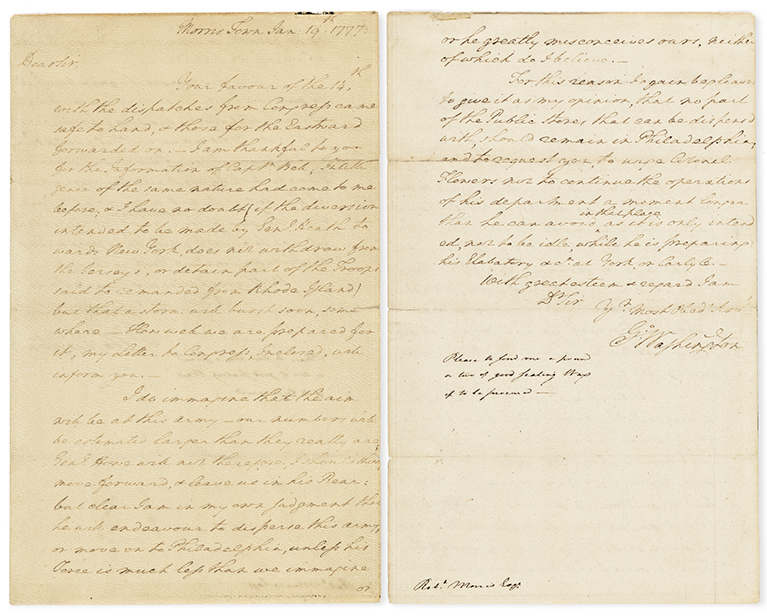 Morris Town Jan 19th 1777.
Dear Sir,
Your favour of the 14th
with the dispatches from Congress came
safe to hand, & those for the Eastward
forwarded on. — I am thankful to you
for the Information of Captn Bell, Intelli
gence of the same nature had come to me
before, & I have no doubt (if the diversion
intended to be made by Genl Heath to
wards New York, does not withdraw from
the Jerseys, or detain part of the Troops
said to be manded from Rhode Island)
but that a storm will burst soon, some
where — How well we are prepared for
it, my Letter to Congress, Inclosed, will
inform you. —
I do immagine that the aim
will be at this army — our numbers will
be estimated larger than they really are,
Genl Howe will not therefore, I should think,
move forward, & leave us in his Rear:
but clear I am in my own judgment that
he will endeavour to disperse this army,
or move on to Philadelphia, unless his
Force is much less than we immagine
or
or he greatly misconceives ours, neither
of which do I believe. —
For this reason I again beg leave
to give it as my opinion, that no part
of the Public Stores that can be dispensd
with, should remain in Philadelphia,
and to request you to urge Colonel
Flowers not to continue the operations
of his department a moment longer
in that place
than he can avoid, as it is only intend
ed, not to be idle, while he is preparing
his Elabatory &ca at York, or Carlyle. —
With great esteem & regard I am
Dr Sir
Yr Most Obedt Servt
Go Washington
Please to send me a pound
or two of good sealing Wax
if to be procured —
Robt Morris Esqr